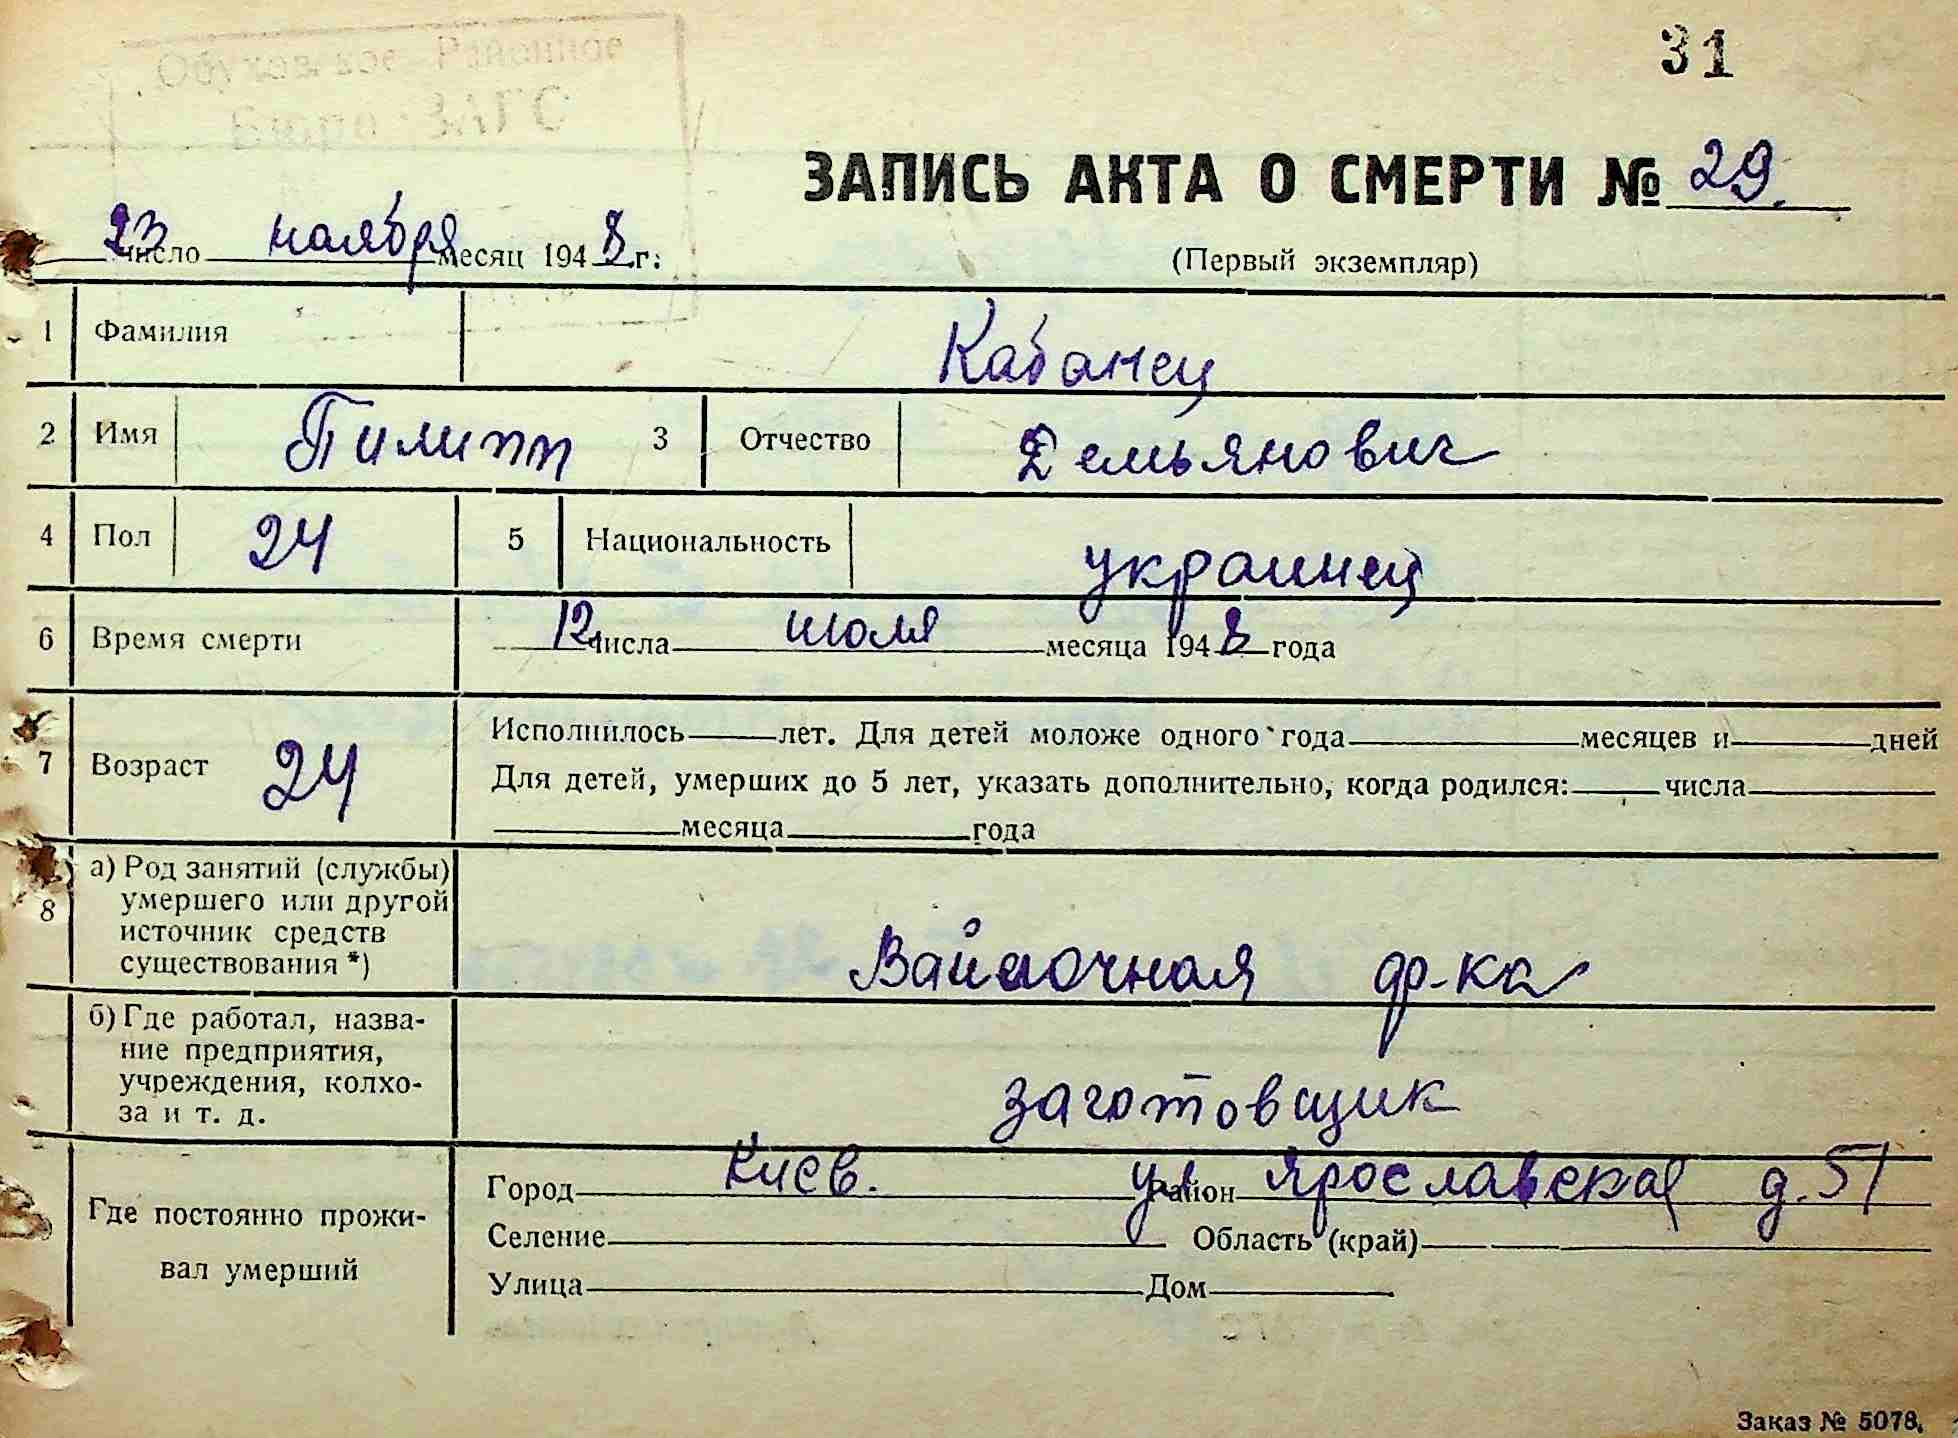 Обуховское Районное
Бюро ЗАГС
31
ЗАПИСЬ АКТА О СМЕРТИ № 29.
23 число ноября месяц 1948 г.
(Первый экземпляр)
1 Фамилия Кабанец
2 Имя Пилипп 3 Отчество Демьянович
4 Пол 24 5 Национальность украинец
6 Время смерти 12 числа июля месяца 1948 года
7 Возраст 24 Исполнилось лет. Для детей моложе одного года месяцев и дней
Для детей, умерших до 5 лет, указать дополнительно, когда родился: числа
месяца года
8 а) Род занятий (службы)
умершего или другой
источник средств
существования *) Вайлочная ф-ка
б) Где работал, назва-
ние предприятия,
учреждения, колхо-
за и т. д. заготовщик
Где постоянно прожи-
вал умерший
Город Киев. район ул Ярославская д. 51
Селение Область (край)
Улица Дом
Заказ № 5078.